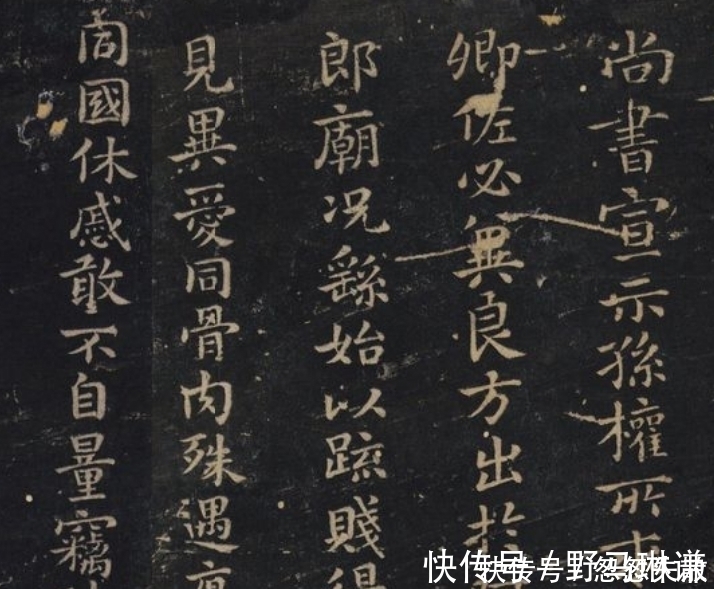 尚書宣示孫權所
卿佐必冀良方出於
郎廟况繇始以疏賤得
見異愛同骨肉殊遇厚
同國休慼敢不自量竊
快传号/